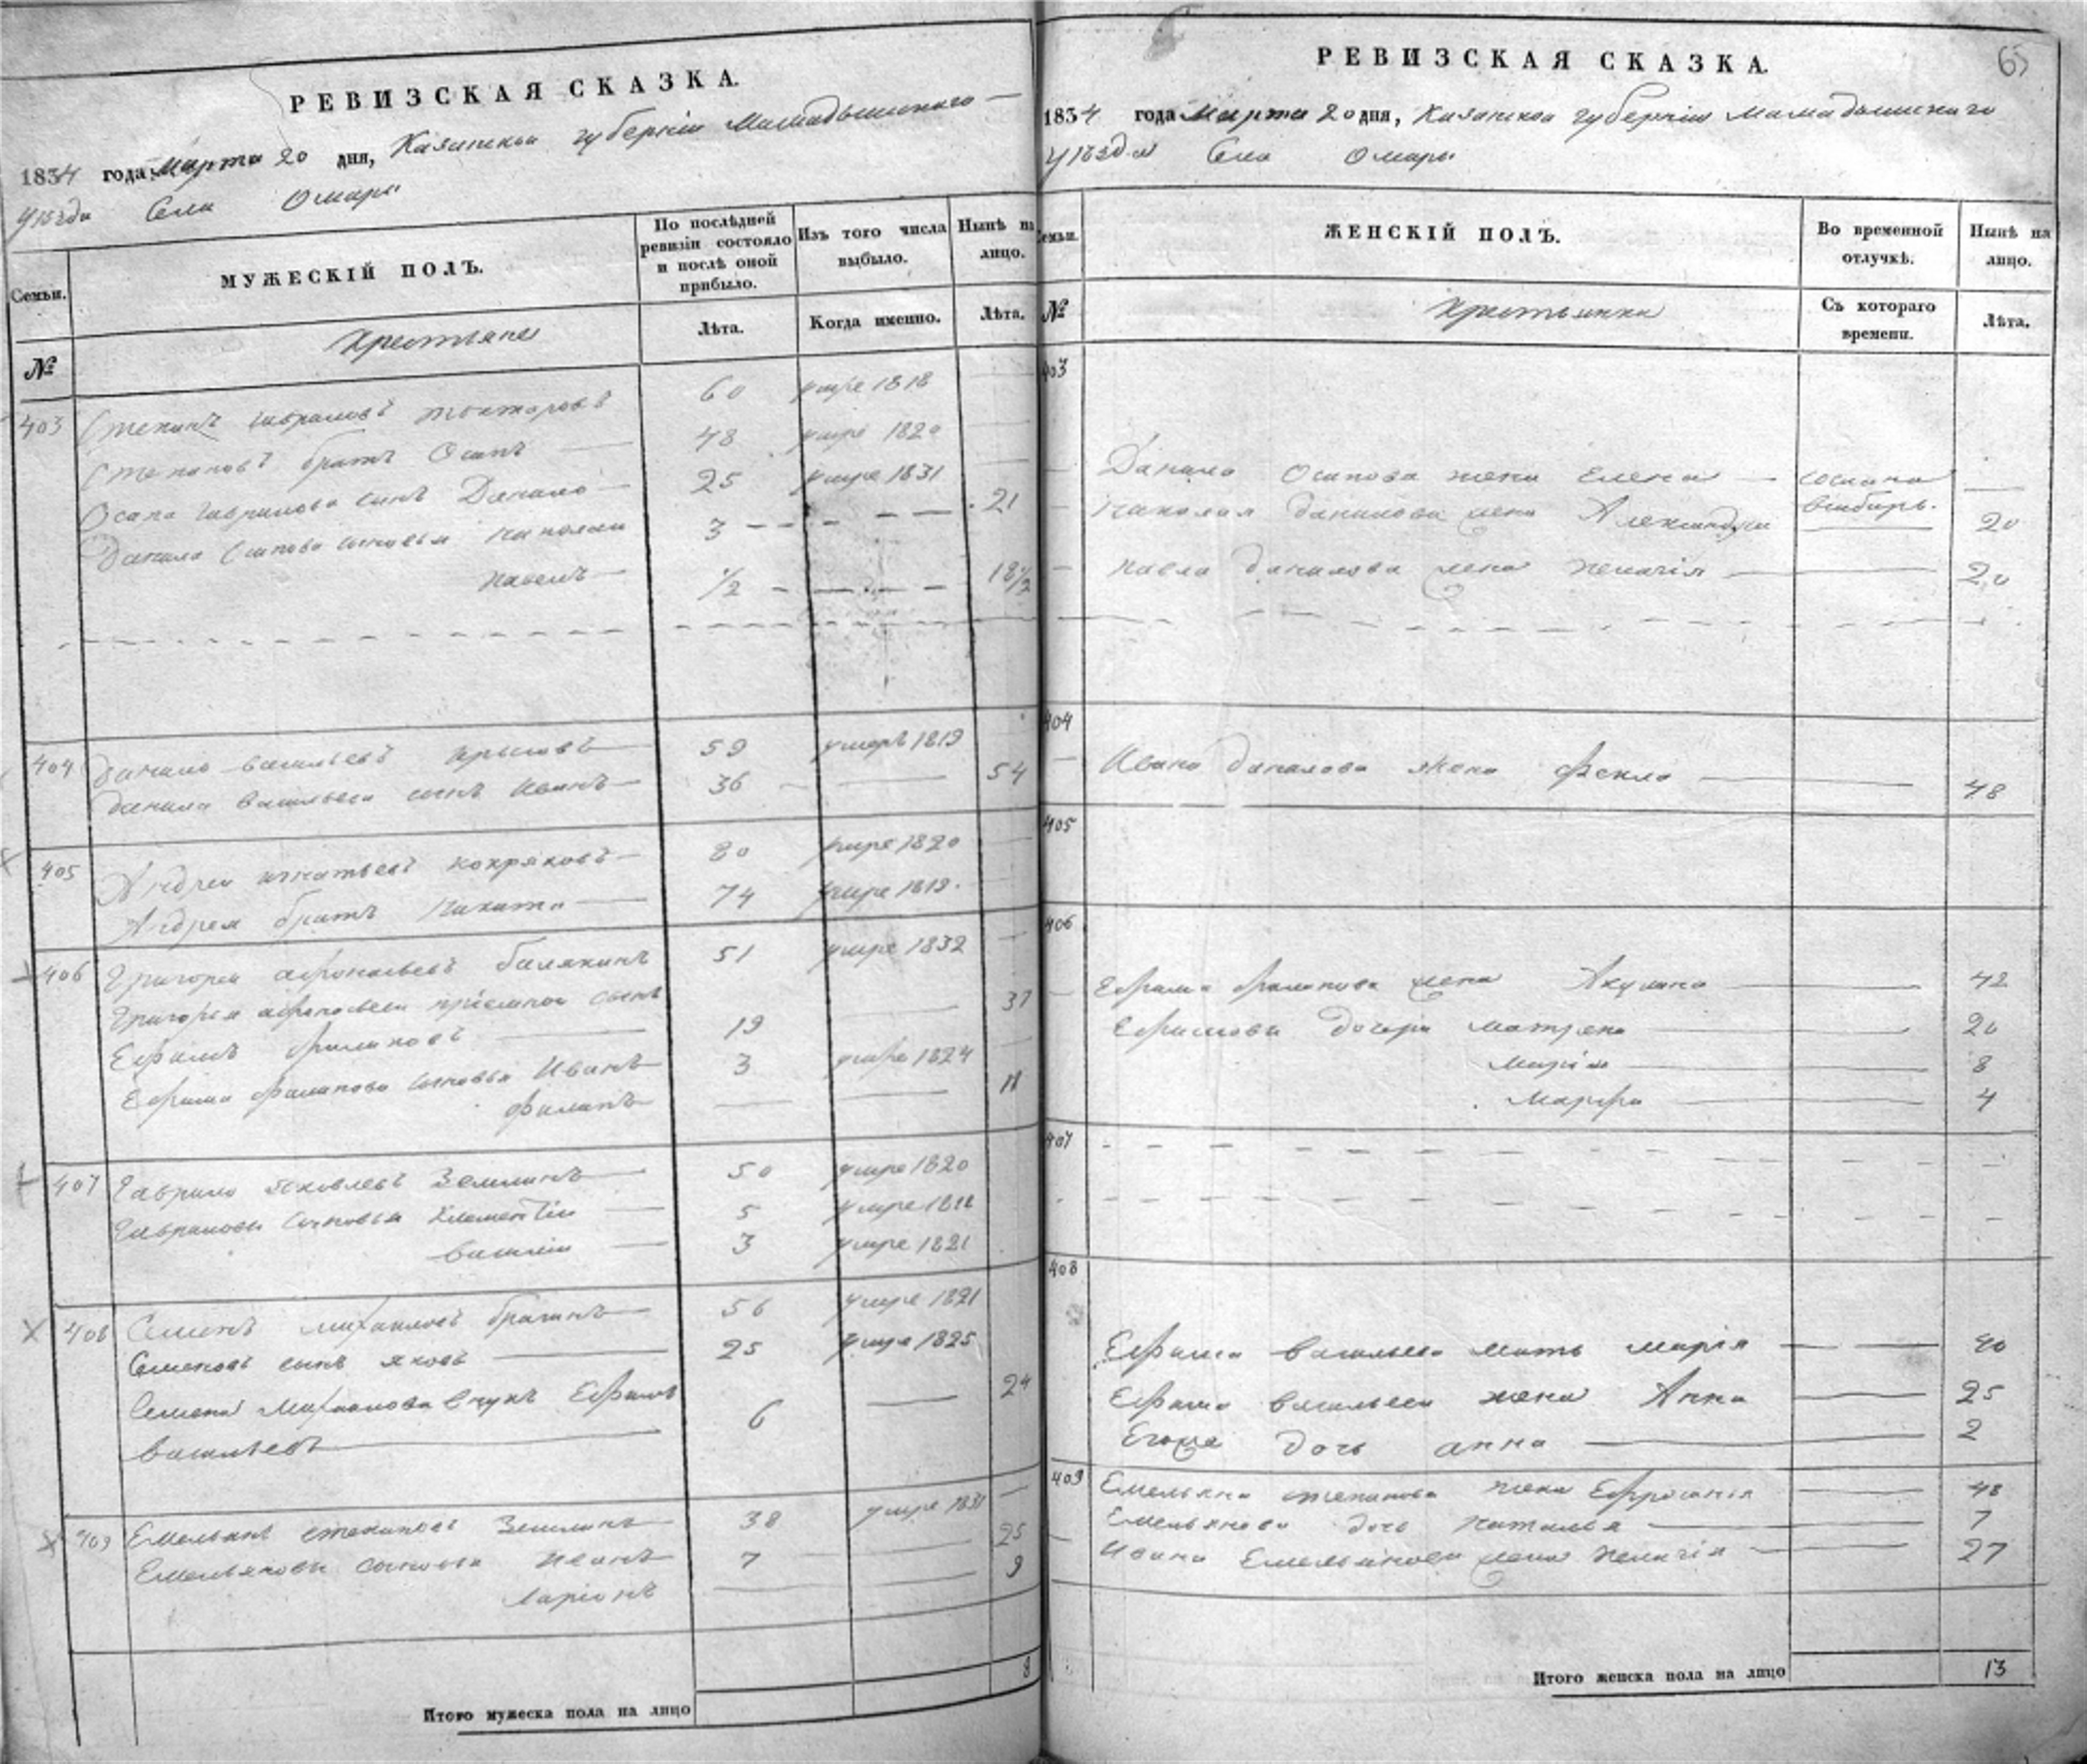 РЕВИЗСКАЯ СКАЗКА.
1834 года Марта 20 дня, Казанской губерніи Мамадышскаго
уѣзда Села Омары
Семьи.
МУЖЕСКІЙ ПОЛЪ.
По послѣдней ревизіи состояло и послѣ оной прибыло.
Изъ того числа выбыло.
Нынѣ на лицо.
№
Крестьяне
Лѣта.
Когда именно.
Лѣта.
403 Степанъ Гавриловъ 60 умре 1818
Степановъ братъ Осипъ 48 умре 1820
Осипа Гаврилова сынъ Данило 25 умре 1831
Данила Осипова сыновья Николаи 3 21
Павелъ 1/2 18 1/2
404 Данило Васильевъ 59 умеръ 1819
Данила Васильева сынъ Иванъ 36 54
405 Андреи Игнатьевъ Кокряковъ 80 умре 1820
Андрея братъ Никита 74 умре 1819.
406 Григореи Афонасьевъ Балякинъ 51 умре 1832
Григорья Афонасьева пріемнои сынъ 37
Ефимъ Филиповъ 19
Ефима Филипова сыновья Иванъ 3 умре 1824
Филипъ 11
407 Гаврило Яковлевъ Землинъ 50 умре 1820
Гавриловы сыновья Клементіи 5 умре
Василіи 3 умре 1821
408 Семенъ Михаиловъ Брагинъ 56 умре 1821
Семеновъ сынъ Яковъ 25 умре 1825
Семена Михаилова внукъ Ефимъ 24
Васильевъ 6
409 Емельянъ Степановъ Землинъ 38 умре 1831
Емельяновы сыновья Иванъ 7 25
Ларіонъ 9
Итого мужеска пола на лицо 8
65
РЕВИЗСКАЯ СКАЗКА.
1834 года Марта 20 дня, Казанской губерніи Мамадышскаго
уѣзда Села Омары
Семьи.
ЖЕНСКІЙ ПОЛЪ.
Во временной отлучкѣ.
Нынѣ на лицо.
№
Крестьянки
Съ котораго времени.
Лѣта.
403
Данила Осипова жена Елена сослана
всибирь.
Николая Данилова жена Александра 20
Павла Данилова жена Пелагія 20
404
Ивана Данилова жена Фекла 48
405
406
Ефима Филипова жена Акулина 42
Ефимовы дочери Матрена 20
Марія 8
Марфа 4
407
408
Ефима Васильева мать Марія 40
Ефима Васильева жена Анна 25
Егоже дочь Анна 2
409 Емельяна Степанова жена Ефросинія 48
Емельянова дочь Наталья 7
Ивана Емельянова жена Пелагія 27
Итого женска пола на лицо 13